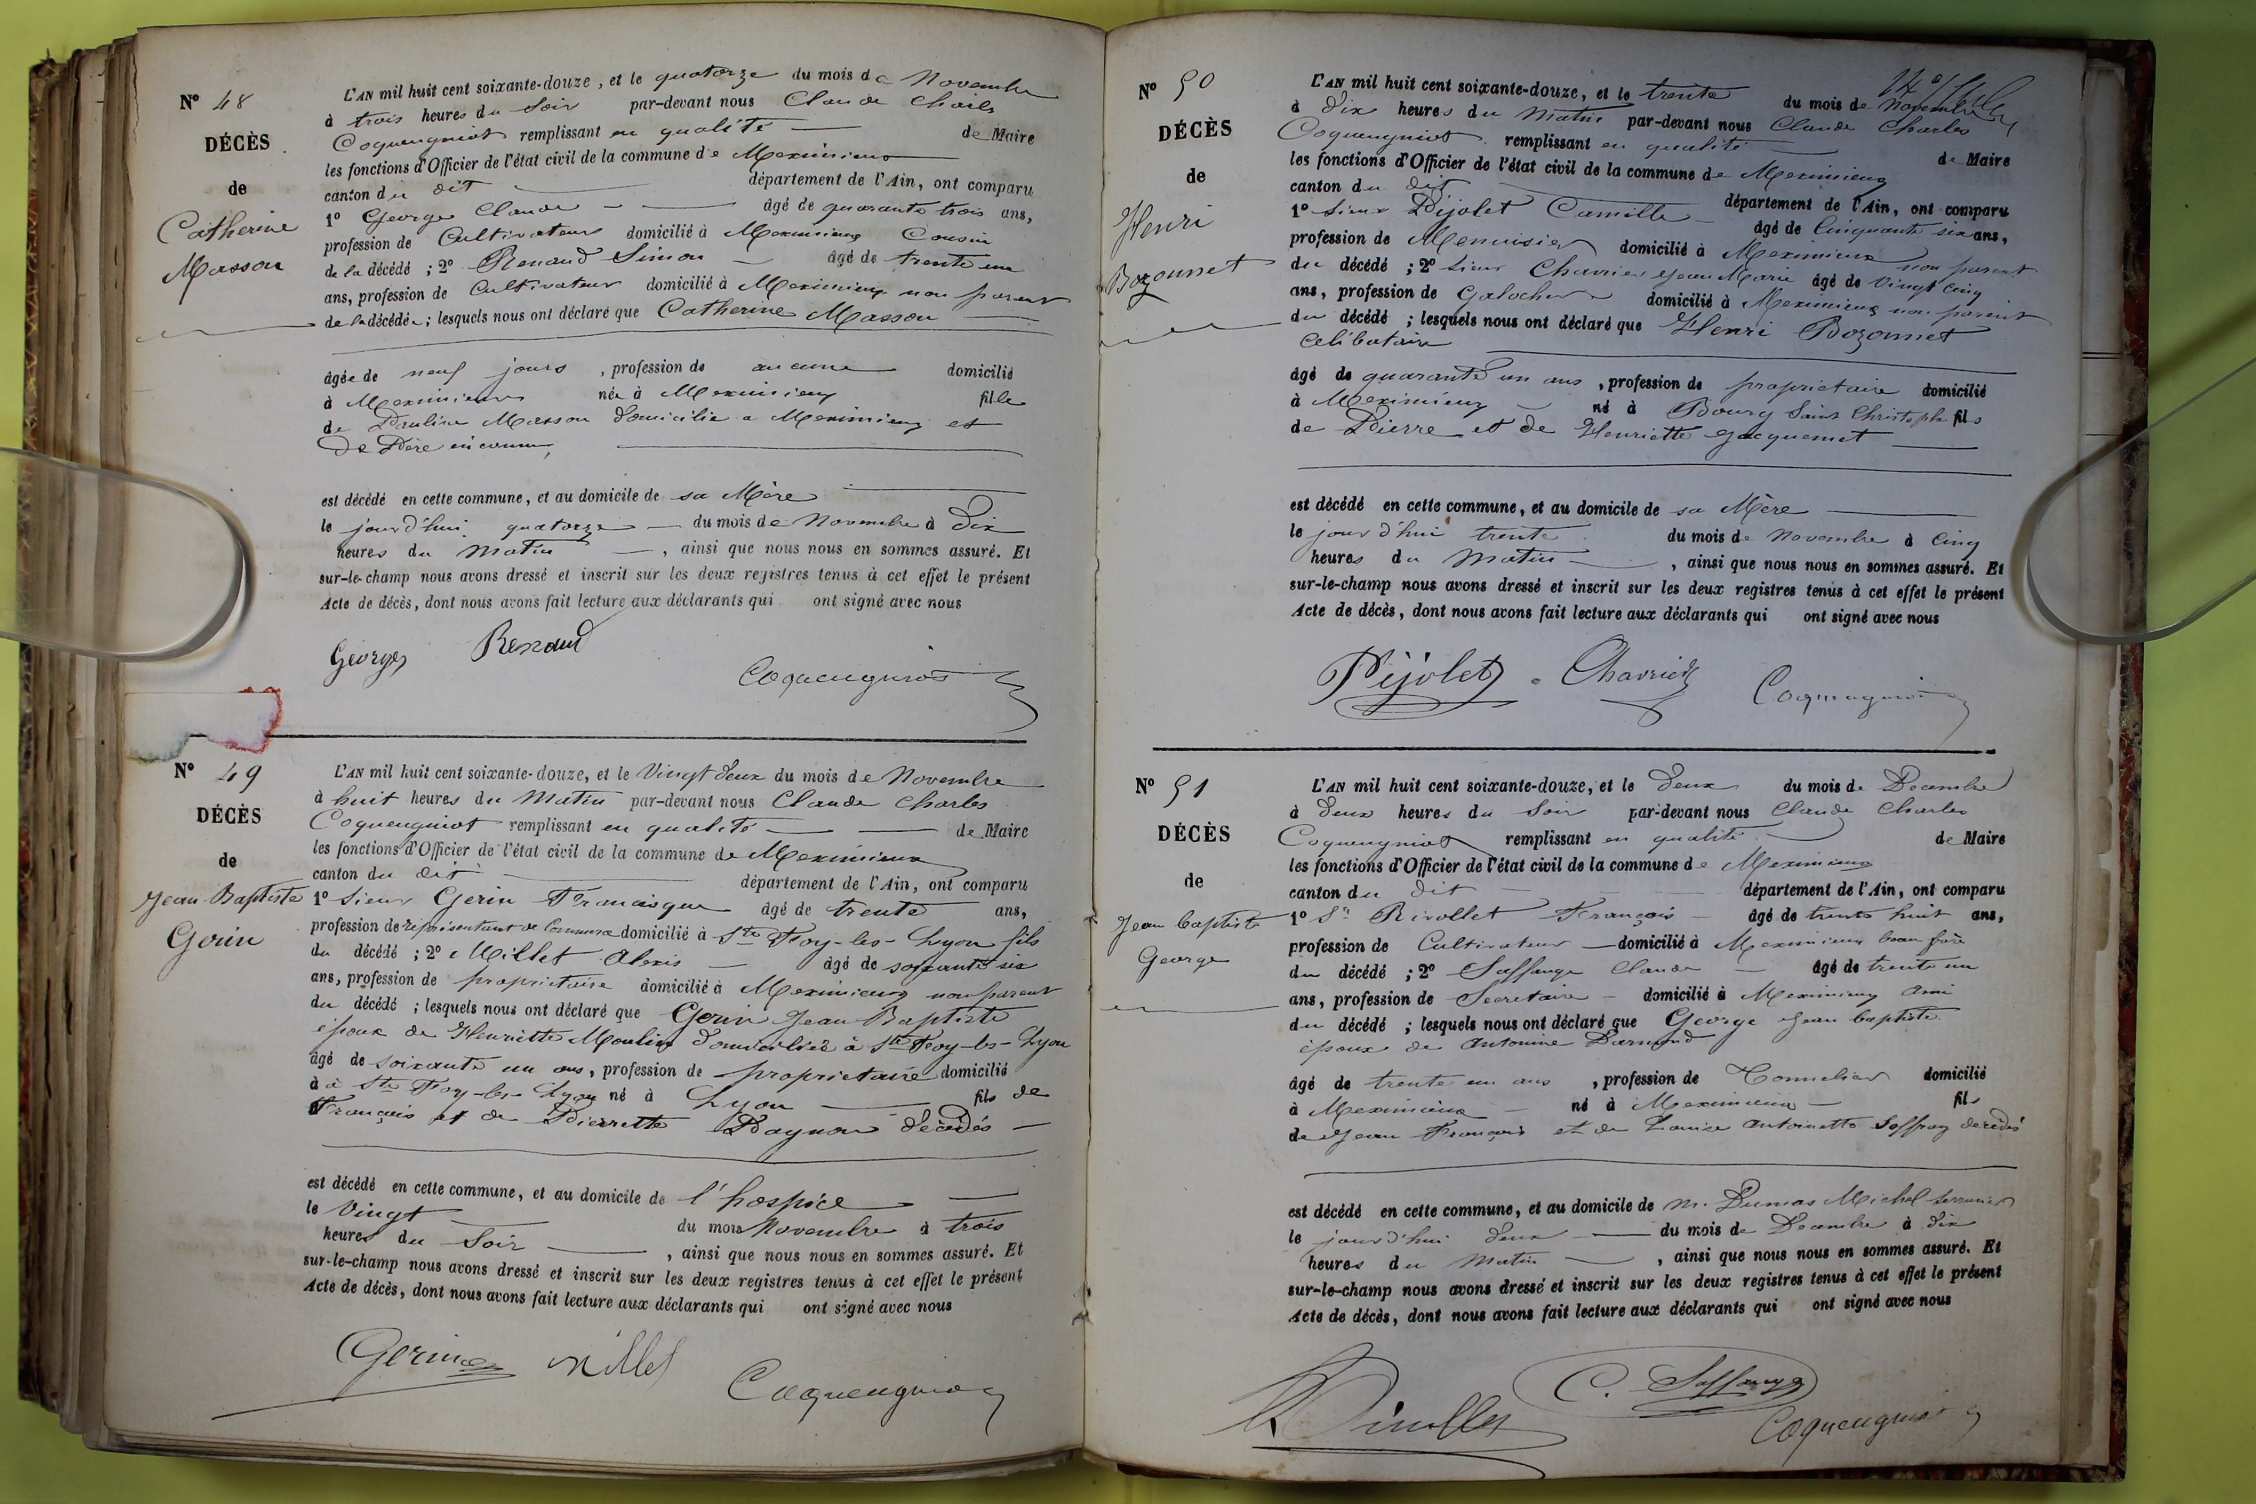 N° 48
DÉCÈS
de
Catherine
Masson
L'AN mil huit cent soixante-douze, et le quatorze du mois de Novembre
à trois heures du Soir par-devant nous Claude Charles
Coqueugniot remplissant en qualité de Maire
les fonctions d'Officier de l'état civil de la commune de Meximieux
canton du dit département de l'Ain, ont comparu
1° George Claude âgé de quarante trois ans,
profession de Cultivateur domicilié à Meximieux Cousin
de la décédé ; 2° Renaud Simon âgé de trente un
ans, profession de Cultivateur domicilié à Meximieux non parent
de la décédée ; lesquels nous ont déclaré que Catherine Masson
âgée de neuf jours , profession de aucune domicilié
à Meximieux née à Meximieux fille
de Pauline Masson domicilie a Meximieux et
de Père inconnu,
est décédé en cette commune, et au domicile de sa Mère
le jourd'hui quatorze du mois de Novembre à Dix
heures du Matin , ainsi que nous nous en sommes assuré. Et
sur-le-champ nous avons dressé et inscrit sur les deux registres tenus à cet effet le présent
Acte de décès, dont nous avons fait lecture aux déclarants qui ont signé avec nous
George Renaud
Coqueugniot
N° 49
DÉCÈS
de
Jean Baptiste
Gerin
L'AN mil huit cent soixante-douze, et le Vingt deux du mois de Novembre
à huit heures du Matin par-devant nous Claude Charles
Coqueugniot remplissant en qualité de Maire
les fonctions d'Officier de l'état civil de la commune de Meximieux
canton du dit département de l'Ain, ont comparu
1° Sieur Gerin Francisque âgé de trente ans,
profession de représentant de Commerce domicilié à Ste Foy-les-Lyon fils
du décédé ; 2° Millet Alexis âgé de soixante six
ans, profession de propriétaire domicilié à Meximieux non parent
du décédé ; lesquels nous ont déclaré que Gerin Jean Baptiste
époux de Henriette Moulin domiciliée à Ste Foy-les-Lyon
âgé de soixante un ans, profession de propriétaire domicilié
à à Ste Foy-les-Lyon né à Lyon fils de
François et de Pierrette Daynon décédés
est décédé en cette commune, et au domicile de l'hospice
le Vingt du mois Novembre à trois
heures du Soir , ainsi que nous nous en sommes assuré. Et
sur-le-champ nous avons dressé et inscrit sur les deux registres tenus à cet effet le présent
Acte de décès, dont nous avons fait lecture aux déclarants qui ont signé avec nous
Gerin Millet
Coqueugniot
N° 50
DÉCÈS
de
Henri
Bozonnet
L'AN mil huit cent soixante-douze, et le trente du mois de Novembre
à Dix heures du Matin par-devant nous Claude Charles
Coqueugniot remplissant en qualité de Maire
les fonctions d'Officier de l'état civil de la commune de Meximieux
canton du dit département de l'Ain, ont comparu
1° Sieur Pijolet Camille âgé de Cinquante six ans,
profession de Menuisier domicilié à Meximieux non parent
du décédé ; 2° Sieur Chavrier Jean Marie âgé de Vingt Cinq
ans, profession de Galocher domicilié à Meximieux non parent
du décédé ; lesquels nous ont déclaré que Henri Bozonnet
Célibataire
âgé de quarante un ans , profession de propriétaire domicilié
à Meximieux né à Bourg Saint Christophe fils
de Pierre et de Henriette Jacquemet
est décédé en cette commune, et au domicile de sa Mère
le jourd'hui trente du mois de Novembre à Cinq
heures du Matin , ainsi que nous nous en sommes assuré. Et
sur-le-champ nous avons dressé et inscrit sur les deux registres tenus à cet effet le présent
Acte de décès, dont nous avons fait lecture aux déclarants qui ont signé avec nous
Pijolet Chavrier
Coqueugniot
N° 51
DÉCÈS
de
Jean baptiste
George
L'AN mil huit cent soixante-douze, et le Deux du mois de Décembre
à Deux heures du Soir par-devant nous Claude Charles
Coqueugniot remplissant en qualité de Maire
les fonctions d'Officier de l'état civil de la commune de Meximieux
canton du dit département de l'Ain, ont comparu
1° Sr Rivollet François âgé de trente huit ans,
profession de Cultivateur domicilié à Meximieux beau frère
du décédé ; 2° Saffange Claude âgé de trente un
ans, profession de Secrétaire domicilié à Meximieux ami
du décédé ; lesquels nous ont déclaré que George Jean baptiste
époux de Antonine Darmand
âgé de trente un ans , profession de Tonnelier domicilié
à Meximieux né à Meximieux fils
de Jean François et de Louise Antoinette Soffray décédés
est décédé en cette commune, et au domicile de M. Dumas Michel serrurier
le jourd'hui deux du mois de Décembre à dix
heures du Matin , ainsi que nous nous en sommes assuré. Et
sur-le-champ nous avons dressé et inscrit sur les deux registres tenus à cet effet le présent
Acte de décès, dont nous avons fait lecture aux déclarants qui ont signé avec nous
Rivollet C. Saffange
Coqueugniot